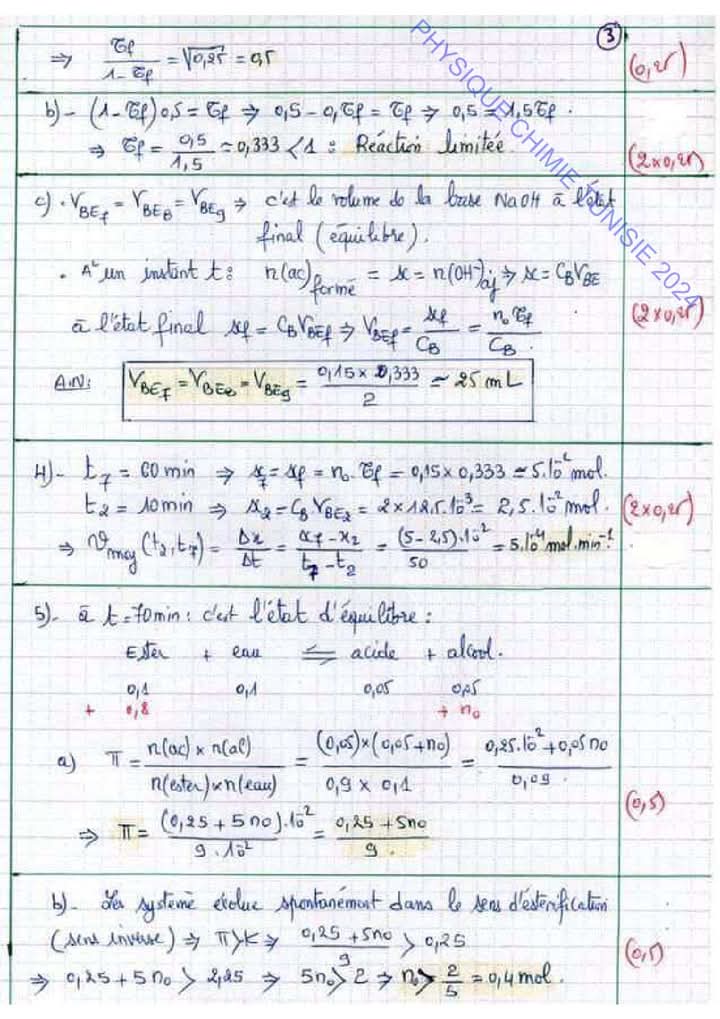 3
⇒ τf / (1 - τf) = √0,25 = 0,5
(0,25)
b)- (1-τf)0,5 = τf ⇒ 0,5 - 0,τf = τf ⇒ 0,5 = 1,5τf.
⇒ τf = 0,5 / 1,5 = 0,333 < 1 : Réaction limitée.
(2x0,25)
c). VBE7 = VBE8 = VBE9 ⇒ c'est le volume de la base NaOH à l'état
final (équilibre).
. A un instant t: n(ac)formé = x = n(OH-)aj ⇒ x = CBVBE
à l'état final xf = CBVBEf ⇒ VBEf = xf / CB = n0 τf / CB.
(2x0,25)
A.N: VBE7 = VBE8 = VBE9 = 0,15 x 0,333 / 2 ≃ 25 mL
4)- t7 = 60 min ⇒ x7 = xf = n0.τf = 0,15 x 0,333 ≃ 5.10-2 mol.
t2 = 10 min ⇒ x2 = CBVBE2 = 2 x 12,5.10-3 = 2,5.10-2 mol.
(2x0,25)
⇒ Vmoy (t2,t7) = Δx / Δt = (x7 - x2) / (t7 - t2) = (5-2,5).10-2 / 50 = 5.10-4 mol.min-1.
5)- à t=70min: c'est l'état d'équilibre:
Ester + eau ⇌ acide + alcool.
0,1 0,1 0,05 0,05
+ 0,8 + n0
a) π = n(ac) x n(al) / n(ester) x n(eau) = (0,05)x(0,05+n0) / 0,9 x 0,1 = 0,25.10-2+0,05 n0 / 0,09.
⇒ π = (0,25 + 5n0).10-2 / 9.10-2 = 0,25 + 5n0 / 9.
(0,5)
b)- Le système évolue spontanément dans le sens d'estérification
(sens inverse) ⇒ π>K ⇒ 0,25 + 5n0 / 9 > 0,25
(0,5)
⇒ 0,25 + 5n0 > 2,25 ⇒ 5n0 > 2 ⇒ n0 > 2/5 = 0,4 mol.
PHYSIQUE CHIMIE TUNISIE 2024